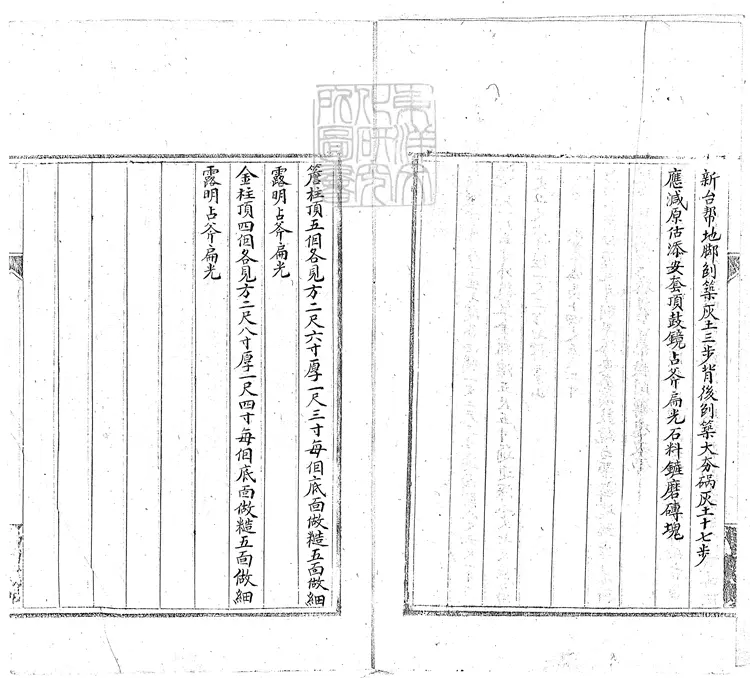 新台帮地脚刨築灰土三步背後刨築大夯碢灰土十七步
應減原估添安套頂鼓鏡占斧扁光石料鏟磨磚塊
簷柱頂五個各見方二尺六寸厚一尺三寸每個底面做糙五面做細
露明占斧扁光
金柱頂四個各見方二尺八寸厚一尺四寸每個底面做糙五面做細
露明占斧扁光
東洋文化研究所圖書